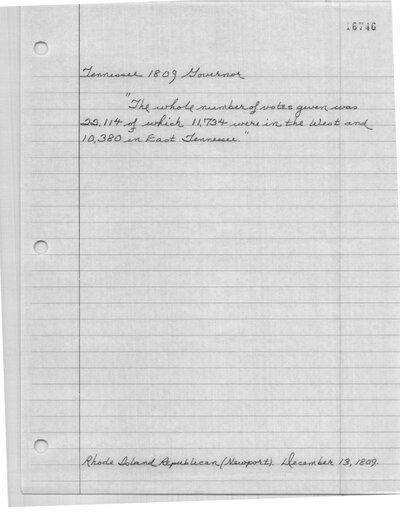 16746
Tennessee 1809 Governor
"The whole number of votes given was
22,114 of which 11,734 were in the West and
10,380 in East Tennessee."
Rhode Island Republican (Newport). December 13, 1809.